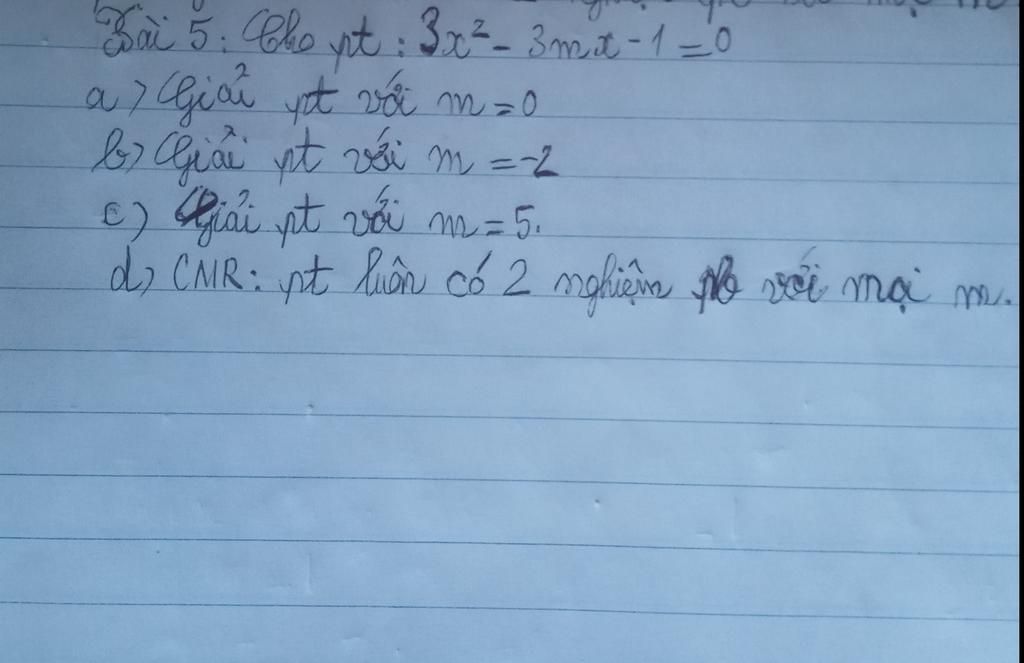 Bài 5: Cho pt: 3x² - 3mx - 1 = 0
a) Giải pt với m = 0
b) Giải pt với m = -2
c) Giải pt với m = 5.
d) CMR: pt luôn có 2 nghiệm với mọi m.